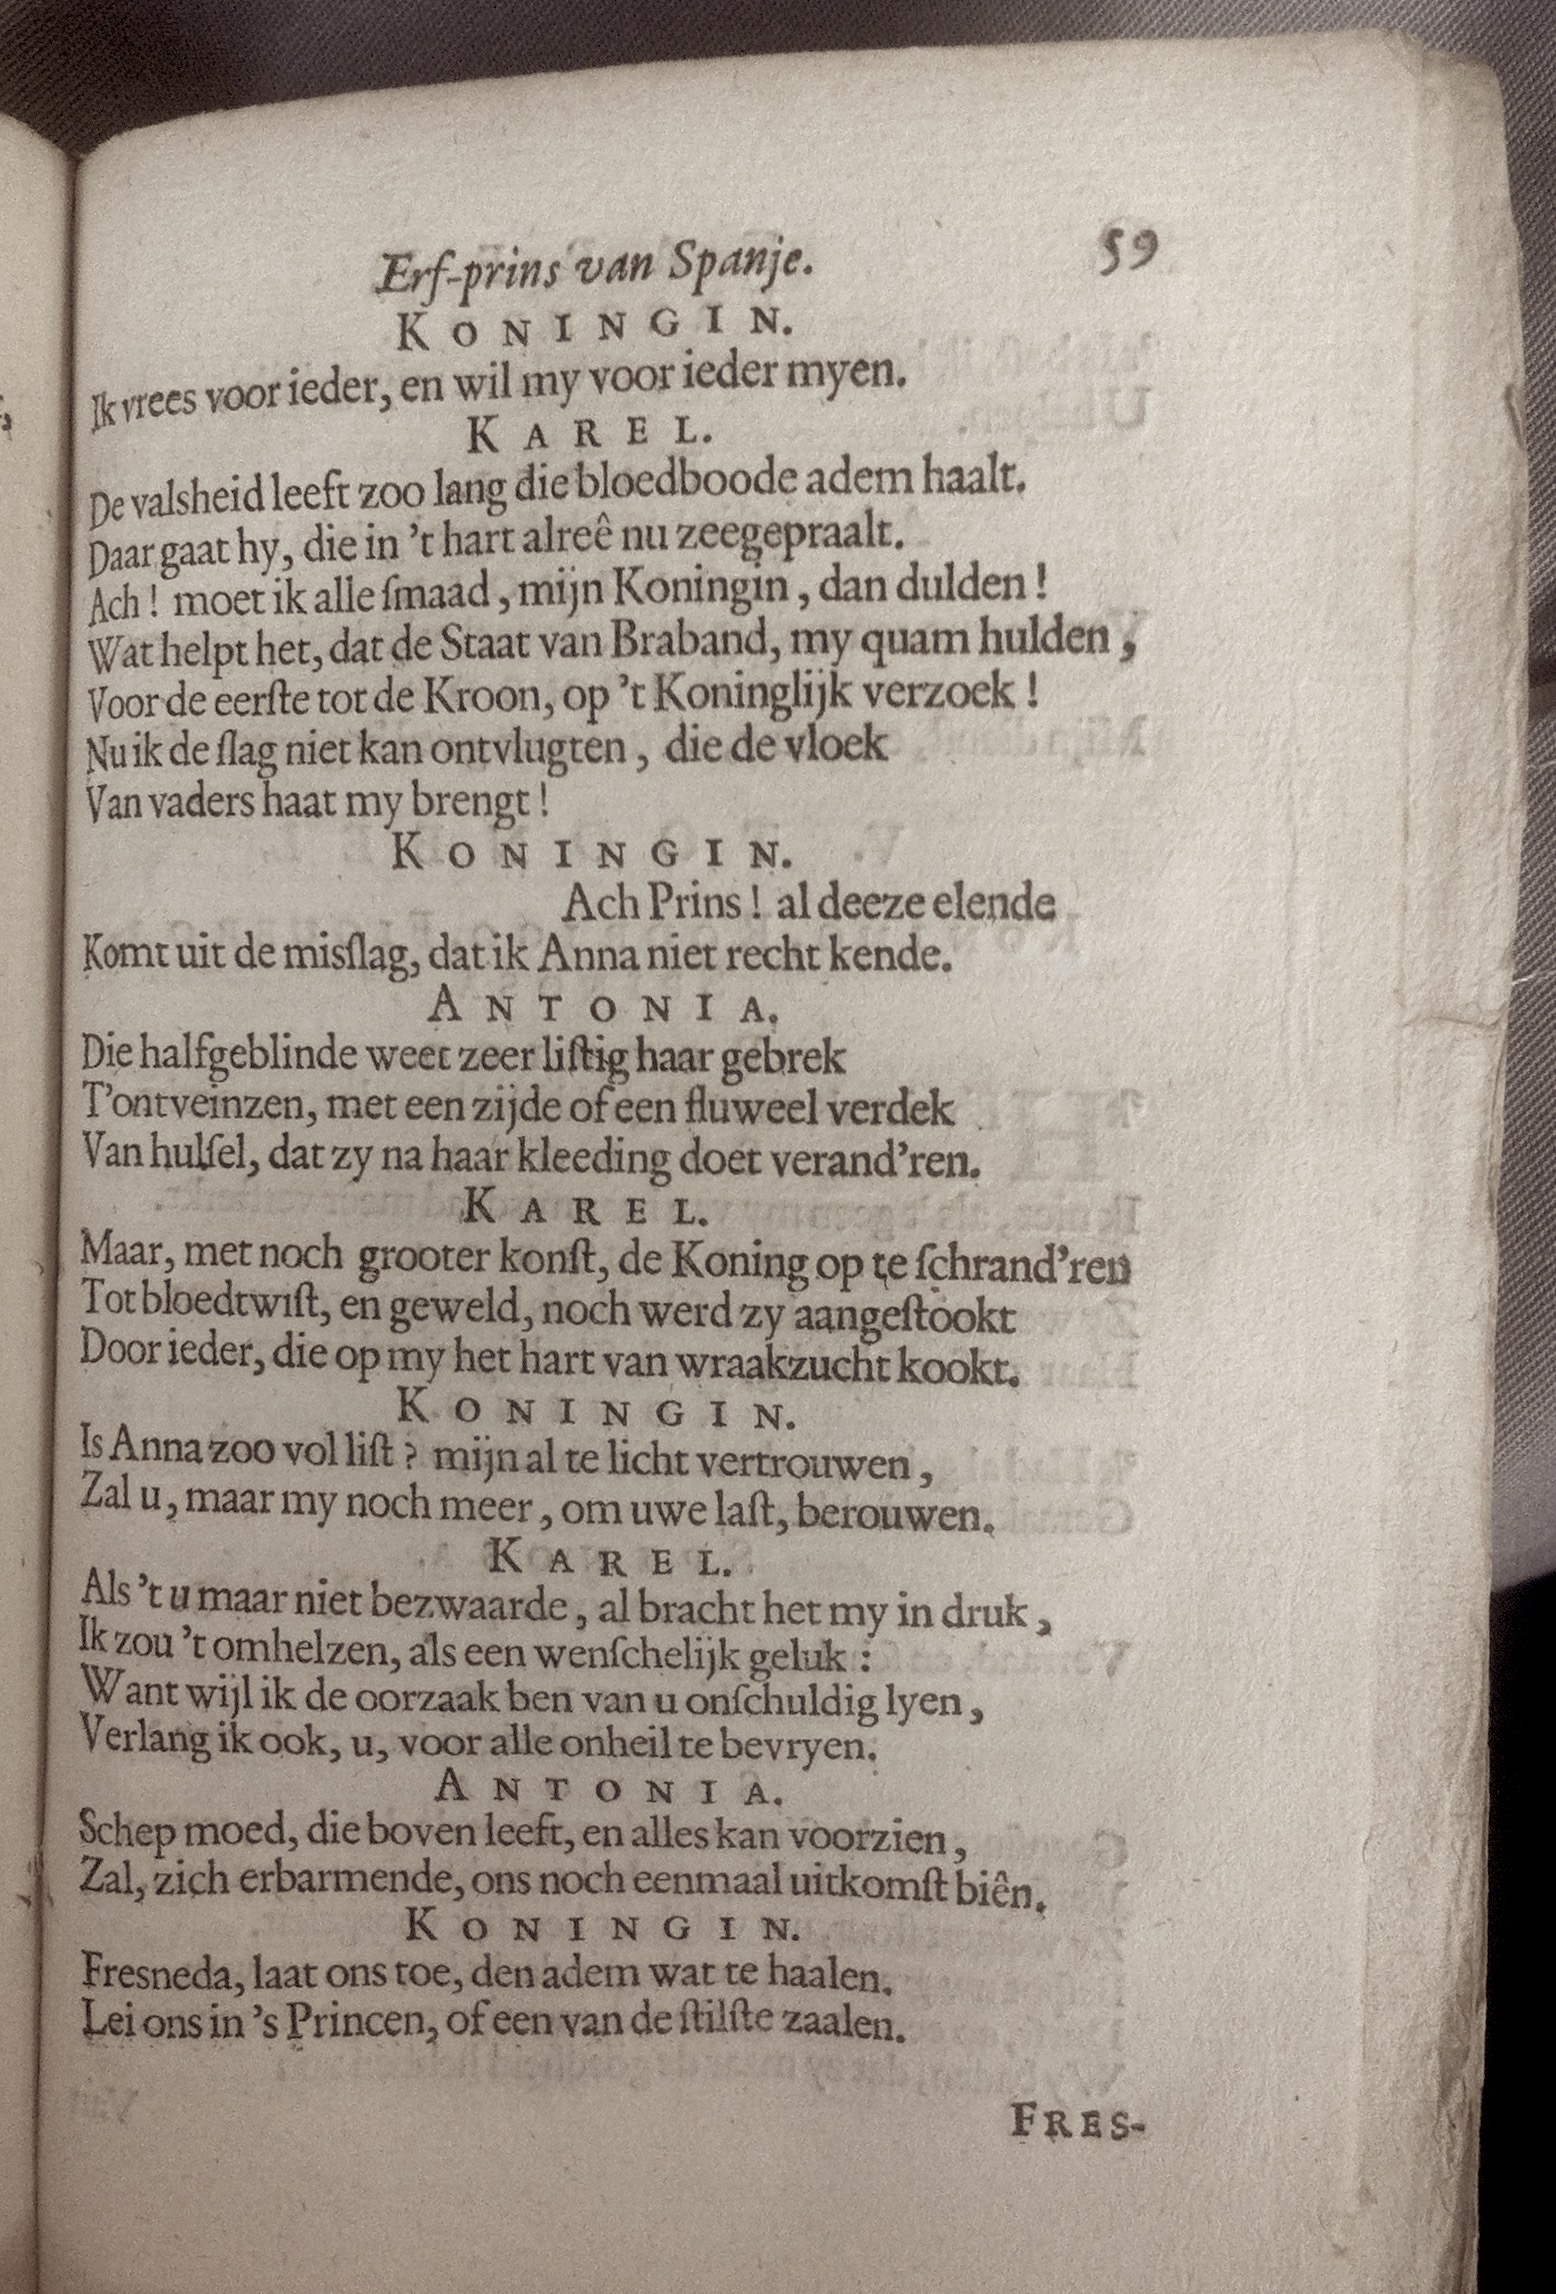 Erf-prins van Spanje. 59
KONINGIN.
Ik vrees voor ieder, en wil my voor ieder myen.
KAREL.
De valsheid leeft zoo lang die bloedboode adem haalt.
Daar gaat hy, die in 't hart alreê nu zeegepraalt.
Ach! moet ik alle ſmaad, mijn Koningin, dan dulden!
Wat helpt het, dat de Staat van Braband, my quam hulden,
Voor de eerſte tot de Kroon, op 't Koninglijk verzoek!
Nu ik de ſlag niet kan ontvlugten, die de vloek
Van vaders haat my brengt!
KONINGIN.
Ach Prins! al deeze elende
Komt uit de misſlag, dat ik Anna niet recht kende.
ANTONIA.
Die halfgeblinde weet zeer liſtig haar gebrek
T'ontveinzen, met een zijde of een fluweel verdek
Van hulſel, dat zy na haar kleeding doet verand'ren.
KAREL.
Maar, met noch grooter konſt, de Koning op te ſchrand'ren
Tot bloedtwiſt, en geweld, noch werd zy aangeſtookt
Door ieder, die op my het hart van wraakzucht kookt.
KONINGIN.
Is Anna zoo vol liſt? mijn al te licht vertrouwen,
Zal u, maar my noch meer, om uwe laſt, berouwen.
KAREL.
Als 't u maar niet bezwaarde, al bracht het my in druk,
Ik zou 't omhelzen, als een wenſchelijk geluk:
Want wijl ik de oorzaak ben van u onſchuldig lyen,
Verlang ik ook, u, voor alle onheil te bevryen.
ANTONIA.
Schep moed, die boven leeft, en alles kan voorzien,
Zal, zich erbarmende, ons noch eenmaal uitkomſt biên.
KONINGIN.
Fresneda, laat ons toe, den adem wat te haalen.
Lei ons in 's Princen, of een van de ſtilſte zaalen.
FRES-